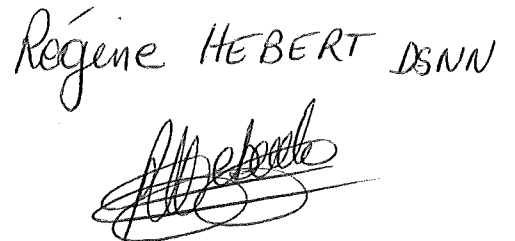 Régine HEBERT DSNN